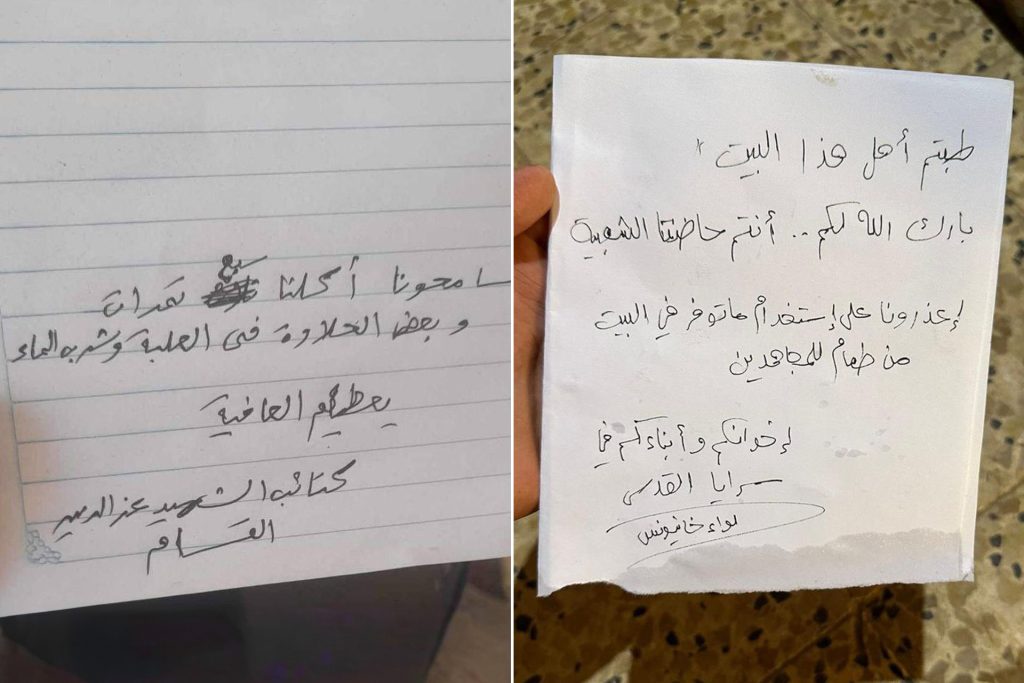 سامحونا أكلنا سبع تمرات
و بعض الحلاوة فى العلبة وشربه الماء
يعطيكم العافية
كتائب الشهيد عز الدين
القسام
طبتم أهل هذا البيت *
بارك الله لكم .. أنتم حاضنتنا الشعبية
إعذرونا على إستخدام ماتوفر في البيت
من طعام للمجاهدين
إخوانكم وأبناءكم في
سرايا القدس
لواء خانيونس